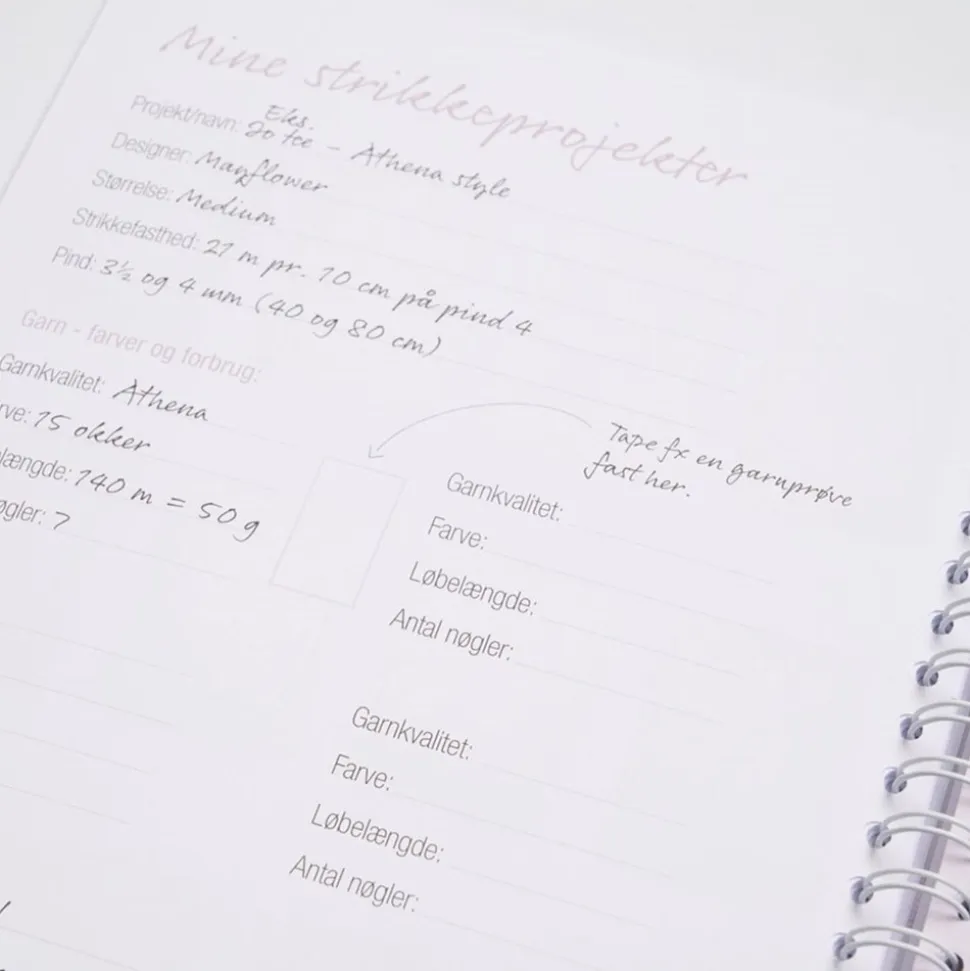 Mine strikkeprojekter
Eks.
Projekt/navn: Jo tee - Athena style
Designer: Mayflower
Størrelse: Medium
Strikkefasthed: 21 m pr. 10 cm på pind 4
Pind: 3½ og 4 mm (40 og 80 cm)
Garn - farver og forbrug:
Garnkvalitet: Athena
rve: 15 okker
længde: 140 m = 50 g
øgler: 7
Tape fx en garnprøve
fast her.
Garnkvalitet:
Farve:
Løbelængde:
Antal nøgler:
Garnkvalitet:
Farve:
Løbelængde:
Antal nøgler: